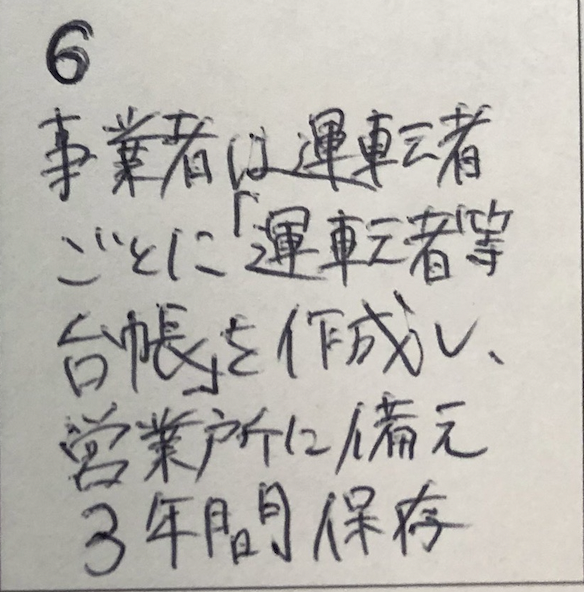 6
事業者は運転者
ごとに「運転者等
台帳」を作成し、
営業所に備え
3年間保存